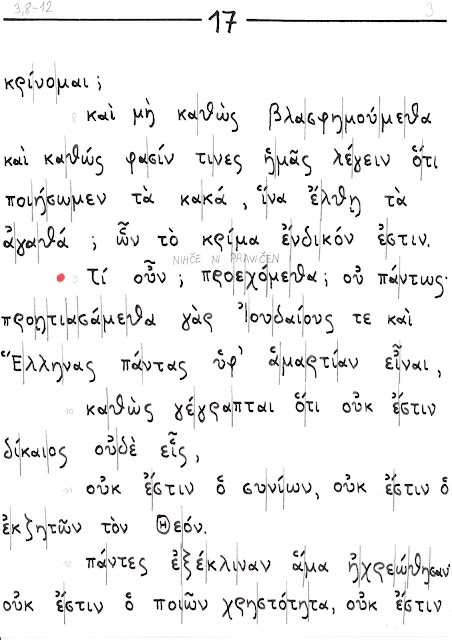 3,8-12
17
3
κρίνομαι;
8 καὶ μὴ καθὼς βλασφημούμεθα
καὶ καθώς φασίν τινες ἡμᾶς λέγειν ὅτι
ποιήσωμεν τὰ κακά, ἵνα ἔλθῃ τὰ
ἀγαθά; ὧν τὸ κρίμα ἔνδικόν ἐστιν.
NIHČE NI PRAVIČEN
9 Τί οὖν; προεχόμεθα; οὐ πάντως·
προητιασάμεθα γὰρ Ἰουδαίους τε καὶ
Ἕλληνας πάντας ὑφ' ἁμαρτίαν εἶναι,
10 καθὼς γέγραπται ὅτι οὐκ ἔστιν
δίκαιος οὐδὲ εἷς,
11 οὐκ ἔστιν ὁ συνίων, οὐκ ἔστιν ὁ
ἐκζητῶν τὸν Θεόν.
12 πάντες ἐξέκλιναν ἅμα ἠχρεώθησαν·
οὐκ ἔστιν ὁ ποιῶν χρηστότητα, οὐκ ἔστιν